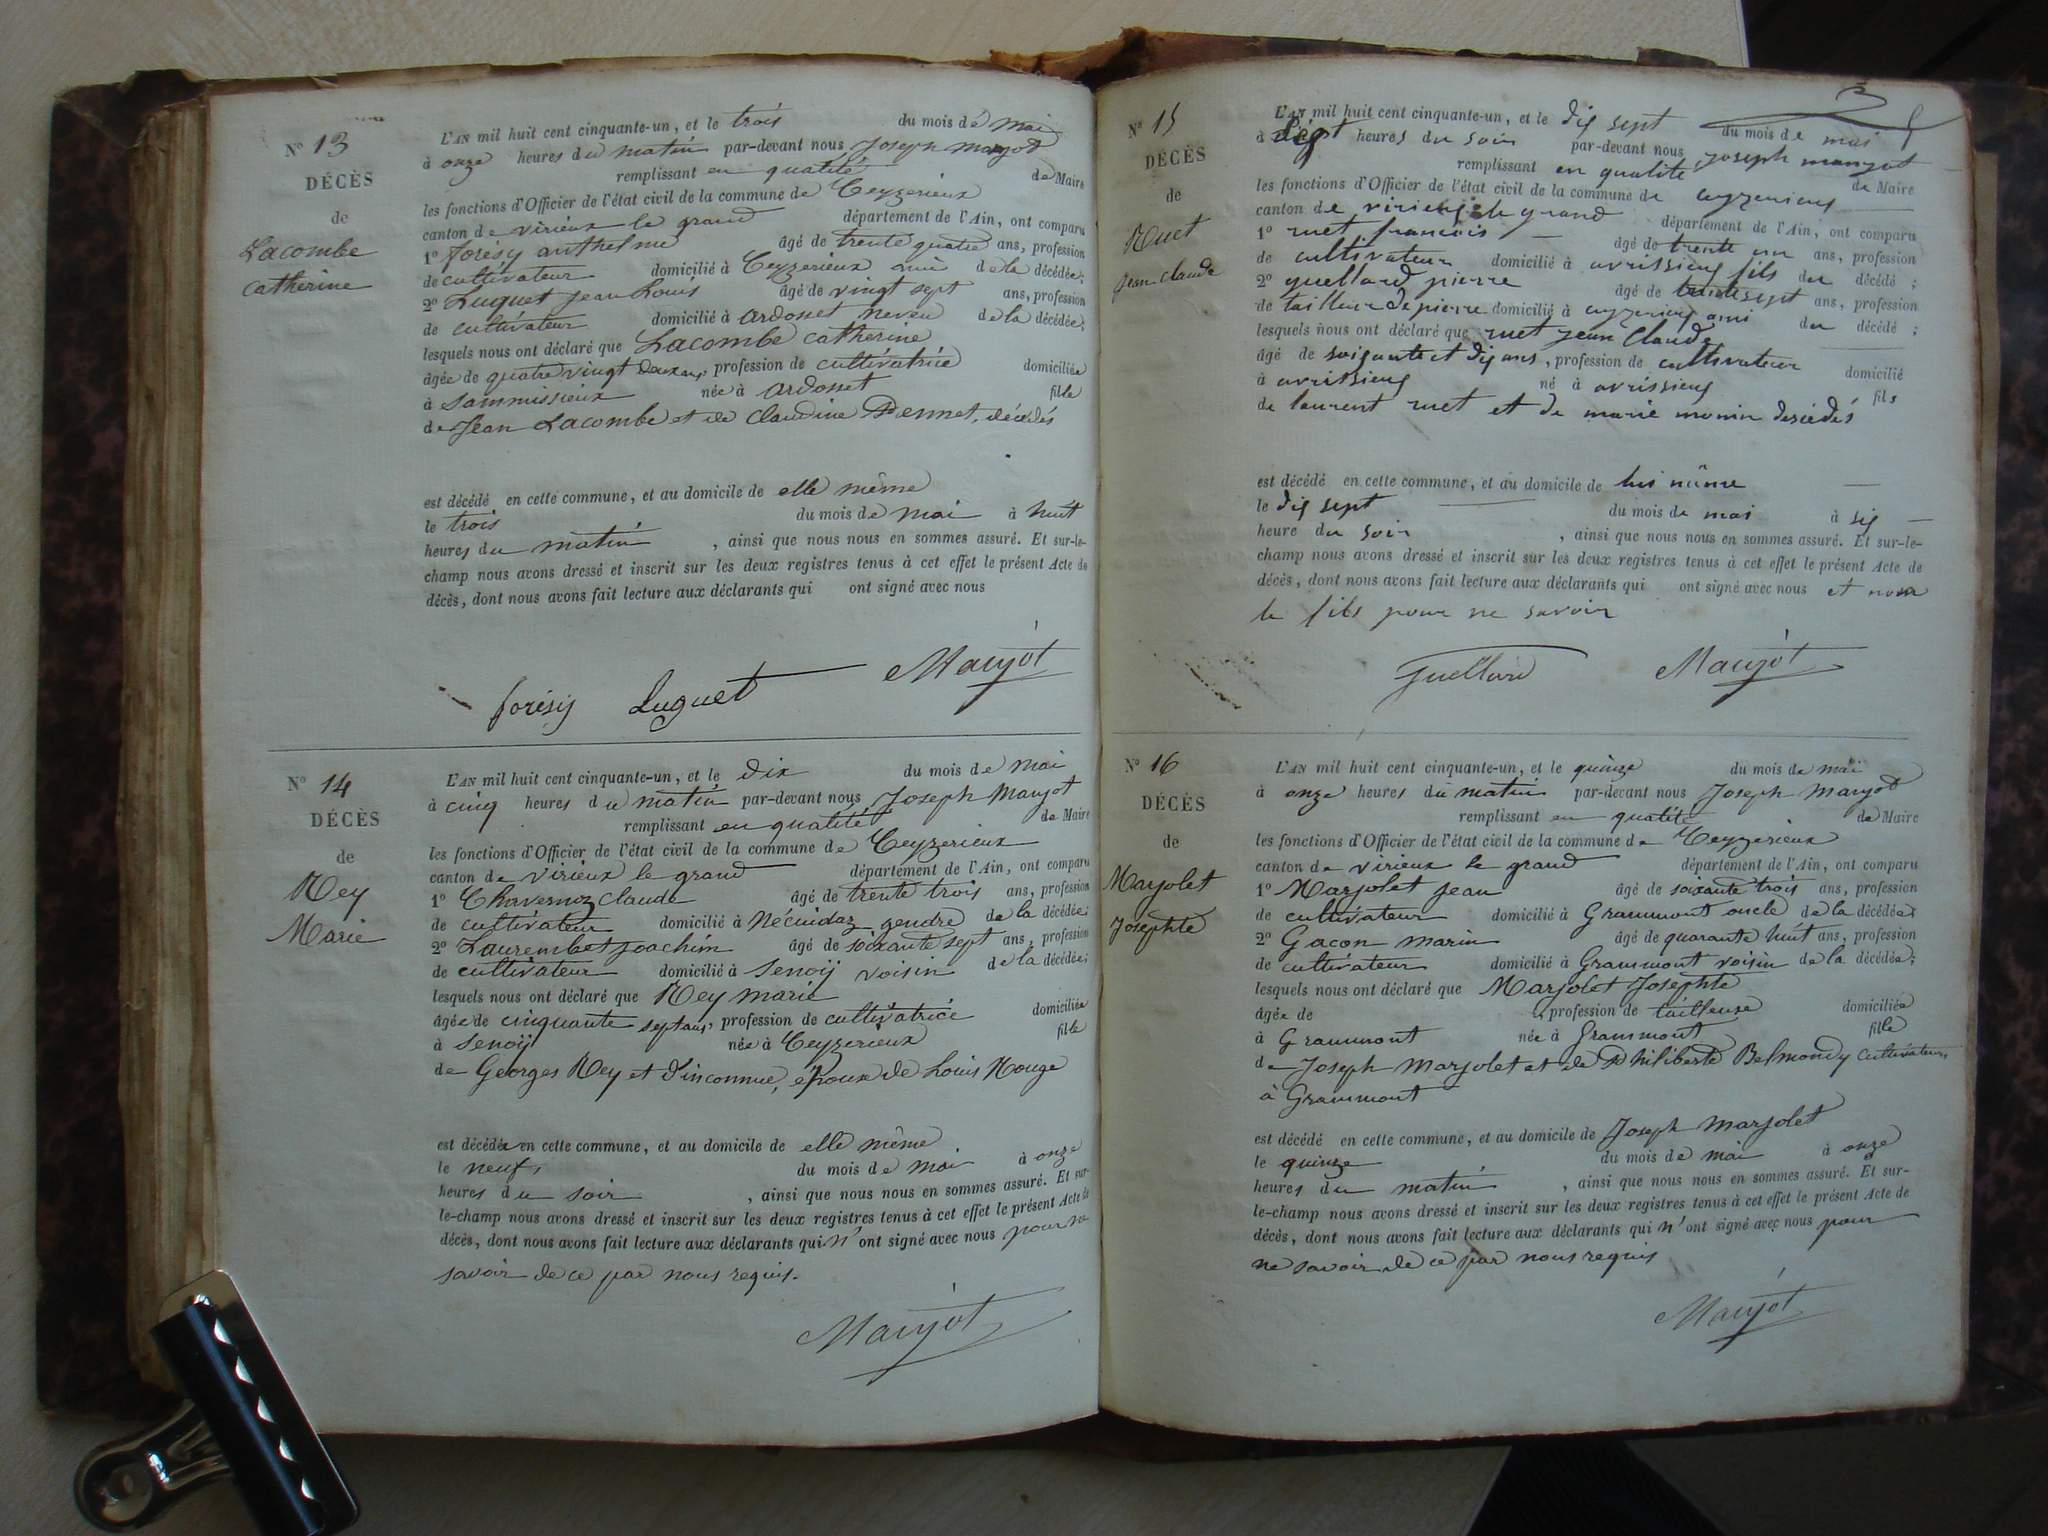 N° 13
DÉCÈS
de
Lacombe
Catherine
L'AN mil huit cent cinquante-un, et le trois du mois de mai
à onze heures du matin par-devant nous Joseph Marjot
remplissant en qualité de Maire
les fonctions d'Officier de l'état civil de la commune de Ceyzerieux
canton de virieux le grand département de l'Ain, ont comparu
1° forésy anthelme âgé de trente quatre ans, profession
de cultivateur domicilié à Ceyzerieux ami de la décédée;
2° Luquet Jean Louis âgé de vingt sept ans, profession
de cultivateur domicilié à ardosset neveu de la décédée;
lesquels nous ont déclaré que Lacombe catherine
âgée de quatre vingt deux ans, profession de cultivatrice domiciliée
à Sammissieux née à ardosset fille
de Jean Lacombe et de Claudine Pennet, décédés
est décédé en cette commune, et au domicile de elle même
le trois du mois de mai à huit
heures du matin, ainsi que nous nous en sommes assuré. Et sur-le-
champ nous avons dressé et inscrit sur les deux registres tenus à cet effet le présent Acte de
décès, dont nous avons fait lecture aux déclarants qui ont signé avec nous
forésy Luguet Marjot
N° 14
DÉCÈS
de
Rey
Marie
L'AN mil huit cent cinquante-un, et le dix du mois de mai
à cinq heures du matin par-devant nous Joseph Marjot
remplissant en qualité de Maire
les fonctions d'Officier de l'état civil de la commune de Ceyzerieux
canton de virieux le grand département de l'Ain, ont comparu
1° Chavernoz claude âgé de trente trois ans, profession
de cultivateur domicilié à Nécuidaz gendre de la décédée;
2° Laurembet joachim âgé de soixante sept ans, profession
de cultivateur domicilié à Senoÿ voisin de la décédée;
lesquels nous ont déclaré que Rey marie
âgée de cinquante sept ans, profession de cultivatrice domiciliée
à Senoÿ née à Ceyzerieux fille
de Georges Rey et d'inconnue, époux de Louis Rouge
est décédée en cette commune, et au domicile de elle même
le neuf du mois de mai à onze
heures du soir, ainsi que nous nous en sommes assuré. Et sur-
le-champ nous avons dressé et inscrit sur les deux registres tenus à cet effet le présent Acte de
décès, dont nous avons fait lecture aux déclarants qui n'ont signé avec nous pour ne
savoir de ce par nous requis.
Marjot
N° 15
DÉCÈS
de
Ruet
Jean-Claude
L'AN mil huit cent cinquante-un, et le dix sept du mois de mai
à sept heures du soir par-devant nous joseph marjot
remplissant en qualité de Maire
les fonctions d'Officier de l'état civil de la commune de ceyzerieux
canton de virieux le grand département de l'Ain, ont comparu
1° ruet francois âgé de trente un ans, profession
de cultivateur domicilié à avrissieux fils du décédé;
2° guellard pierre âgé de trente sept ans, profession
de tailleur de pierre domicilié à ceyzerieux ami du décédé;
lesquels nous ont déclaré que ruet jean Claude
âgé de soixante et dix ans, profession de cultivateur domicilié
à avrissieux né à avrissieux fils
de laurent ruet et de marie monin desédés
est décédé en cette commune, et au domicile de lui même
le dix sept du mois de mai à six
heure du soir, ainsi que nous nous en sommes assuré. Et sur-le-
champ nous avons dressé et inscrit sur les deux registres tenus à cet effet le présent Acte de
décès, dont nous avons fait lecture aux déclarants qui ont signé avec nous et non
le fils pour ne savoir
Guellard Marjot
N° 16
DÉCÈS
de
Marjolet
Josephte
L'AN mil huit cent cinquante-un, et le quinze du mois de mai
à onze heures du matin par-devant nous Joseph Marjot
remplissant en qualité de Maire
les fonctions d'Officier de l'état civil de la commune de Ceyzerieux
canton de virieux le grand département de l'Ain, ont comparu
1° Marjolet jean âgé de soixante trois ans, profession
de cultivateur domicilié à Grammont oncle de la décédée;
2° Gacon marin âgé de quarante huit ans, profession
de cultivateur domicilié à Grammont voisin de la décédée;
lesquels nous ont déclaré que Marjolet Josephte
âgée de profession de tailleuse domiciliée
à Grammont née à Grammont fille
de Joseph Marjolet et de Philiberte Belmondy cultivateurs
à Grammont
est décédé en cette commune, et au domicile de Joseph Marjolet
le quinze du mois de mai à onze
heures du matin, ainsi que nous nous en sommes assuré. Et sur-
le-champ nous avons dressé et inscrit sur les deux registres tenus à cet effet le présent Acte de
décès, dont nous avons fait lecture aux déclarants qui n'ont signé avec nous pour
ne savoir de ce par nous requis
Marjot